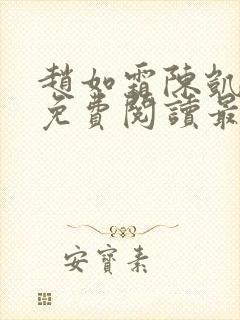 趙如霜陳凱
免費閱讀最
安寶素